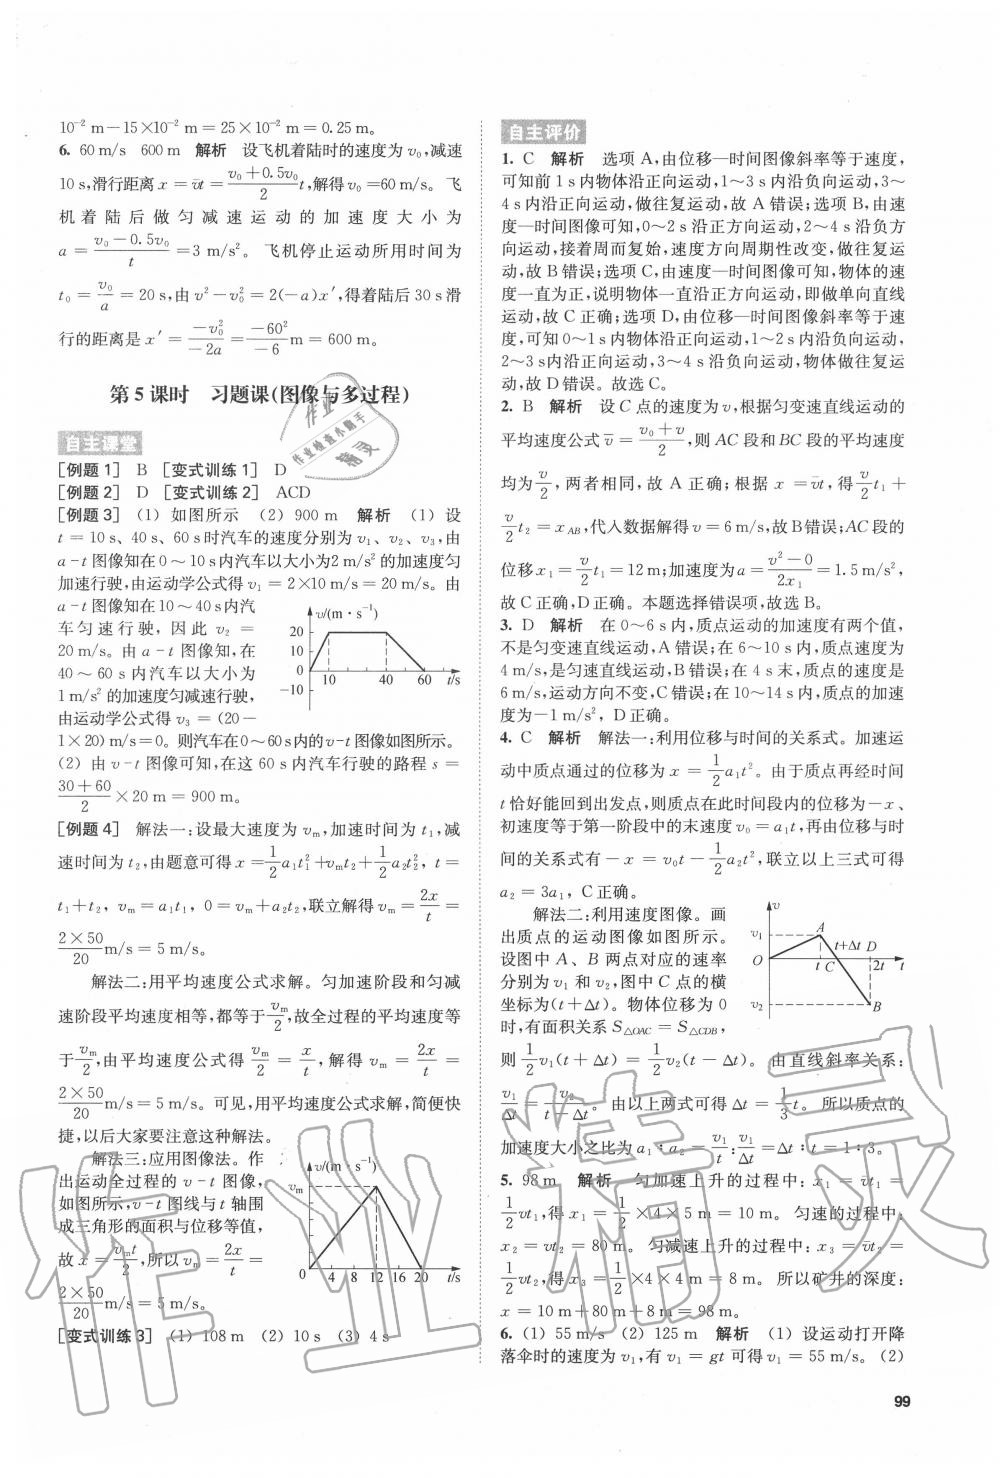 10⁻² m－15×10⁻² m＝25×10⁻² m＝0.25 m。
6. 60 m/s　600 m　解析　设飞机着陆时的速度为 v₀,减速
10 s,滑行距离 x＝v̄t＝(v₀＋0.5v₀)/2 t,解得v₀＝60 m/s。飞
机着陆后做匀减速运动的加速度大小为
a＝(v₀－0.5v₀)/t＝3 m/s²。飞机停止运动所用时间为
t₀＝v₀/a＝20 s,由 v²－v₀²＝2(－a)x′,得着陆后 30 s 滑
行的距离是 x′＝－v₀²/－2a＝－60²/－6 m＝600 m。
第 5 课时　习题课(图像与多过程)
自主课堂
[例题 1]　B　[变式训练 1]　D
[例题 2]　D　[变式训练 2]　ACD
[例题 3]　(1) 如图所示　(2) 900 m　解析　(1) 设
t＝10 s、40 s、60 s时汽车的速度分别为 v₁、v₂、v₃,由
a-t 图像知在 0～10 s内汽车以大小为2 m/s² 的加速度匀
加速行驶,由运动学公式得 v₁＝2×10 m/s＝20 m/s。由
a-t 图像知在10～40 s内汽
车匀速行驶,因此 v₂＝
20 m/s。由 a-t 图像知,在
40～60 s 内汽车以大小为
1 m/s² 的加速度匀减速行驶,
由运动学公式得 v₃＝(20－
1×20) m/s＝0。则汽车在0～60 s内的v-t 图像如图所示。
v/(m·s⁻¹)
20
10
0
－10
10　40　60　t/s
(2) 由 v-t 图像可知,在这 60 s 内汽车行驶的路程 s＝
(30＋60)/2×20 m＝900 m。
[例题 4]　解法一:设最大速度为 vₘ,加速时间为 t₁,减
速时间为 t₂,由题意可得 x＝1/2 a₁t₁²＋vₘt₂＋1/2 a₂t₂²,t＝
t₁＋t₂,vₘ＝a₁t₁,0＝vₘ＋a₂t₂,联立解得 vₘ＝2x/t＝
2×50/20 m/s＝5 m/s。
解法二:用平均速度公式求解。匀加速阶段和匀减
速阶段平均速度相等,都等于vₘ/2,故全过程的平均速度等
于vₘ/2,由平均速度公式得 vₘ/2＝x/t,解得 vₘ＝2x/t＝
2×50/20 m/s＝5 m/s。可见,用平均速度公式求解,简便快
捷,以后大家要注意这种解法。
解法三:应用图像法。作
出运动全过程的 v-t 图像,
如图所示,v-t 图线与 t 轴围
成三角形的面积与位移等值,
故 x＝vₘt/2,所以 vₘ＝2x/t＝
2×50/20 m/s＝5 m/s。
v/(m·s⁻¹)
vₘ
0　4　8　12　16　20　t/s
[变式训练 3]　(1) 108 m　(2) 10 s　(3) 4 s
自主评价
1. C　解析　选项 A,由位移—时间图像斜率等于速度,
可知前 1 s 内物体沿正向运动,1～3 s 内沿负向运动,3～
4 s 内沿正向运动,做往复运动,故 A 错误;选项 B,由速
度—时间图像可知,0～2 s 沿正方向运动,2～4 s 沿负方
向运动,接着周而复始,速度方向周期性改变,做往复运
动,故 B 错误;选项 C,由速度—时间图像可知,物体的速
度一直为正,说明物体一直沿正方向运动,即做单向直线
运动,故 C 正确;选项 D,由位移—时间图像斜率等于速
度,可知 0～1 s 内物体沿正向运动,1～2 s 内沿负向运动,
2～3 s内沿正向运动,3～4 s 沿负向运动,物体做往复运
动,故 D 错误。故选 C。
2. B　解析　设 C 点的速度为 v,根据匀变速直线运动的
平均速度公式 v̄＝(v₀＋v)/2,则 AC 段和 BC 段的平均速度
均为v/2,两者相同,故 A 正确;根据 x＝v̄t,得v/2 t₁＋
v/2 t₂＝xAB,代入数据解得 v＝6 m/s,故 B错误;AC 段的
位移x₁＝v/2 t₁＝12 m;加速度为a＝(v²－0)/2x₁＝1.5 m/s²,
故 C 正确,D 正确。本题选择错误项,故选 B。
3. D　解析　在 0～6 s 内,质点运动的加速度有两个值,
不是匀变速直线运动,A 错误;在 6～10 s 内,质点速度为
4 m/s,是匀速直线运动,B 错误;在 4 s 末,质点的速度是
6 m/s,运动方向不变,C 错误;在 10～14 s 内,质点的加速
度为－1 m/s²,D 正确。
4. C　解析　解法一:利用位移与时间的关系式。加速运
动中质点通过的位移为 x＝1/2 a₁t²。由于质点再经时间
t恰好能回到出发点,则质点在此时间段内的位移为－x、
初速度等于第一阶段中的末速度 v₀＝a₁t,再由位移与时
间的关系式有－x＝v₀t－1/2 a₂t²,联立以上三式可得
a₂＝3a₁,C 正确。
解法二:利用速度图像。画
出质点的运动图像如图所示。
设图中 A、B 两点对应的速率
分别为 v₁ 和 v₂,图中 C 点的横
坐标为(t＋Δt)。物体位移为 0
时,有面积关系 S△OAC＝S△CDB,
v
v₁　A　t＋Δt　D
O　t　C　2t　t
v₂　B
则 1/2 v₁(t＋Δt)＝1/2 v₂(t－Δt)。由直线斜率关系:
v₁/Δt＝v₂/(t－Δt)。由以上两式可得 Δt＝1/3 t。所以质点的
加速度大小之比为 a₁∶a₂＝v₁/t∶v₁/Δt＝Δt∶t＝1∶3。
5. 98 m　解析　匀加速上升的过程中:x₁＝v̄t₁＝
1/2 vt₁,得 x₁＝1/2×4×5 m＝10 m。匀速的过程中:
x₂＝vt₂＝80 m。匀减速上升的过程中:x₃＝v̄t₂＝
1/2 vt₂,得 x₃＝1/2×4×4 m＝8 m。所以矿井的深度:
x＝10 m＋80 m＋8 m＝98 m。
6. (1) 55 m/s　(2) 125 m　解析　(1) 设运动打开降
落伞时的速度为 v₁,有 v₁＝gt 可得 v₁＝55 m/s。(2)
99
作业
作业检查小助手
精灵
作业精灵